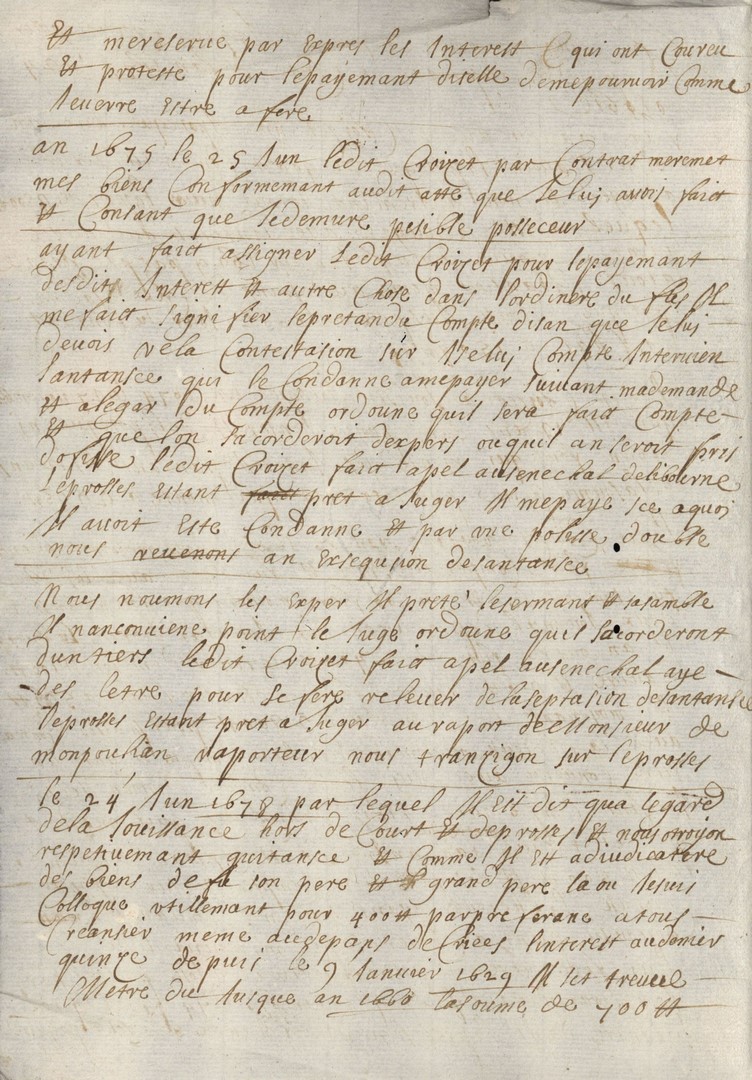 Et mereserve par expres les Interest & qui ont Coureu
Et proteste pour lepayemant dicelle demepourvoir Comme
Jeverre Estre a fere
an 1675 le 25 Jun ledit Croizet par Contrat meremet
mes biens Conformemant audit atte que Je luy avois faict
Et Consant que Jedemure pesible posseceur
ayant faict assigner Ledit Croizet pour lepayemant
desdits Interest Et autre Chose dans lordinere du Il
mefaict signifier lepretandu Compte disan que Jeluy
devois vela Contestasion sur Jceluy Compte Intervien
santansce qui le Condanne amepayer suivant mademande
Et alegar du Compte ordoune quil sera faict Compte
Et que lon sacorderoit dexpers ouquil an seroit pris
dofisse ledit Croizet faict apel ausenechal delibourne
leprosses Estant faict pret a Juger Il mepaye sce aquoi
Il avoit Este Condanne Et par une polisse double
nous revenons an Exsequsion desantansce
Nous noumons les Exper Il prete lesermant Et sasamble
Il nanconviene point le Juge ordoune quil sacorderont
duntiers ledit Croizet faict apel ausenechal aye
des letre pour se fere relever delaseptasion desantansce
leprosses Estant pret a Juger au raport de Monsieur de
monpoulian raporteur nous tranzigon sur leprosses
le 24 Jun 1678 par lequel Il Est dit qua legard
dela Jouissance hors de Court Et deprosses Et nousotroyon
respetivemant quitansce Et Comme Il Est adiudicatere
des biens de fu son pere Et grand pere la ou Jesuis
Colloque utillemant pour 400 tt parpreferanse atous
Creansier meme audepans deCriees linterest audenier
quinze depuis le 9 Janvier 1629 Il set treuve
Metre du Jusque an 1660 lasoume de 700 tt